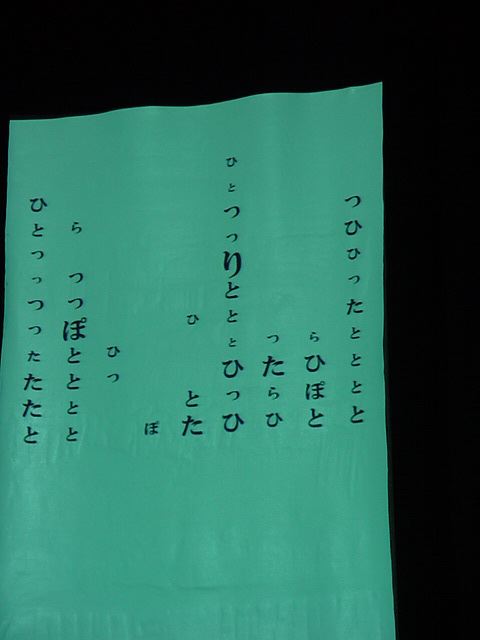 つひひったととととと
らひぽと
つたらひ
ひとつっりとととひっひ
ひとた
ぽ
ひつ
らつつぽととと
とひとつっつったたたと